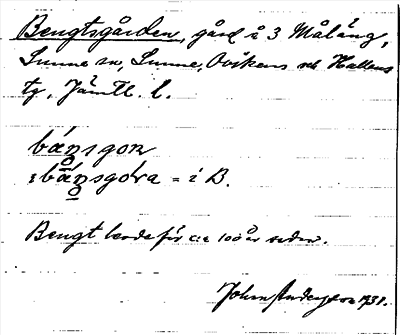 Bengtsgården, gård å 3 Målång,
Sunne sn, Sunne, Ovikens och Hallens
tg, Jämtl. l.
báṉsgon
ɪbáṉsgóra = i B.
Bengt levde för c:a 100 år sedan.
Johan Anderson 1931.